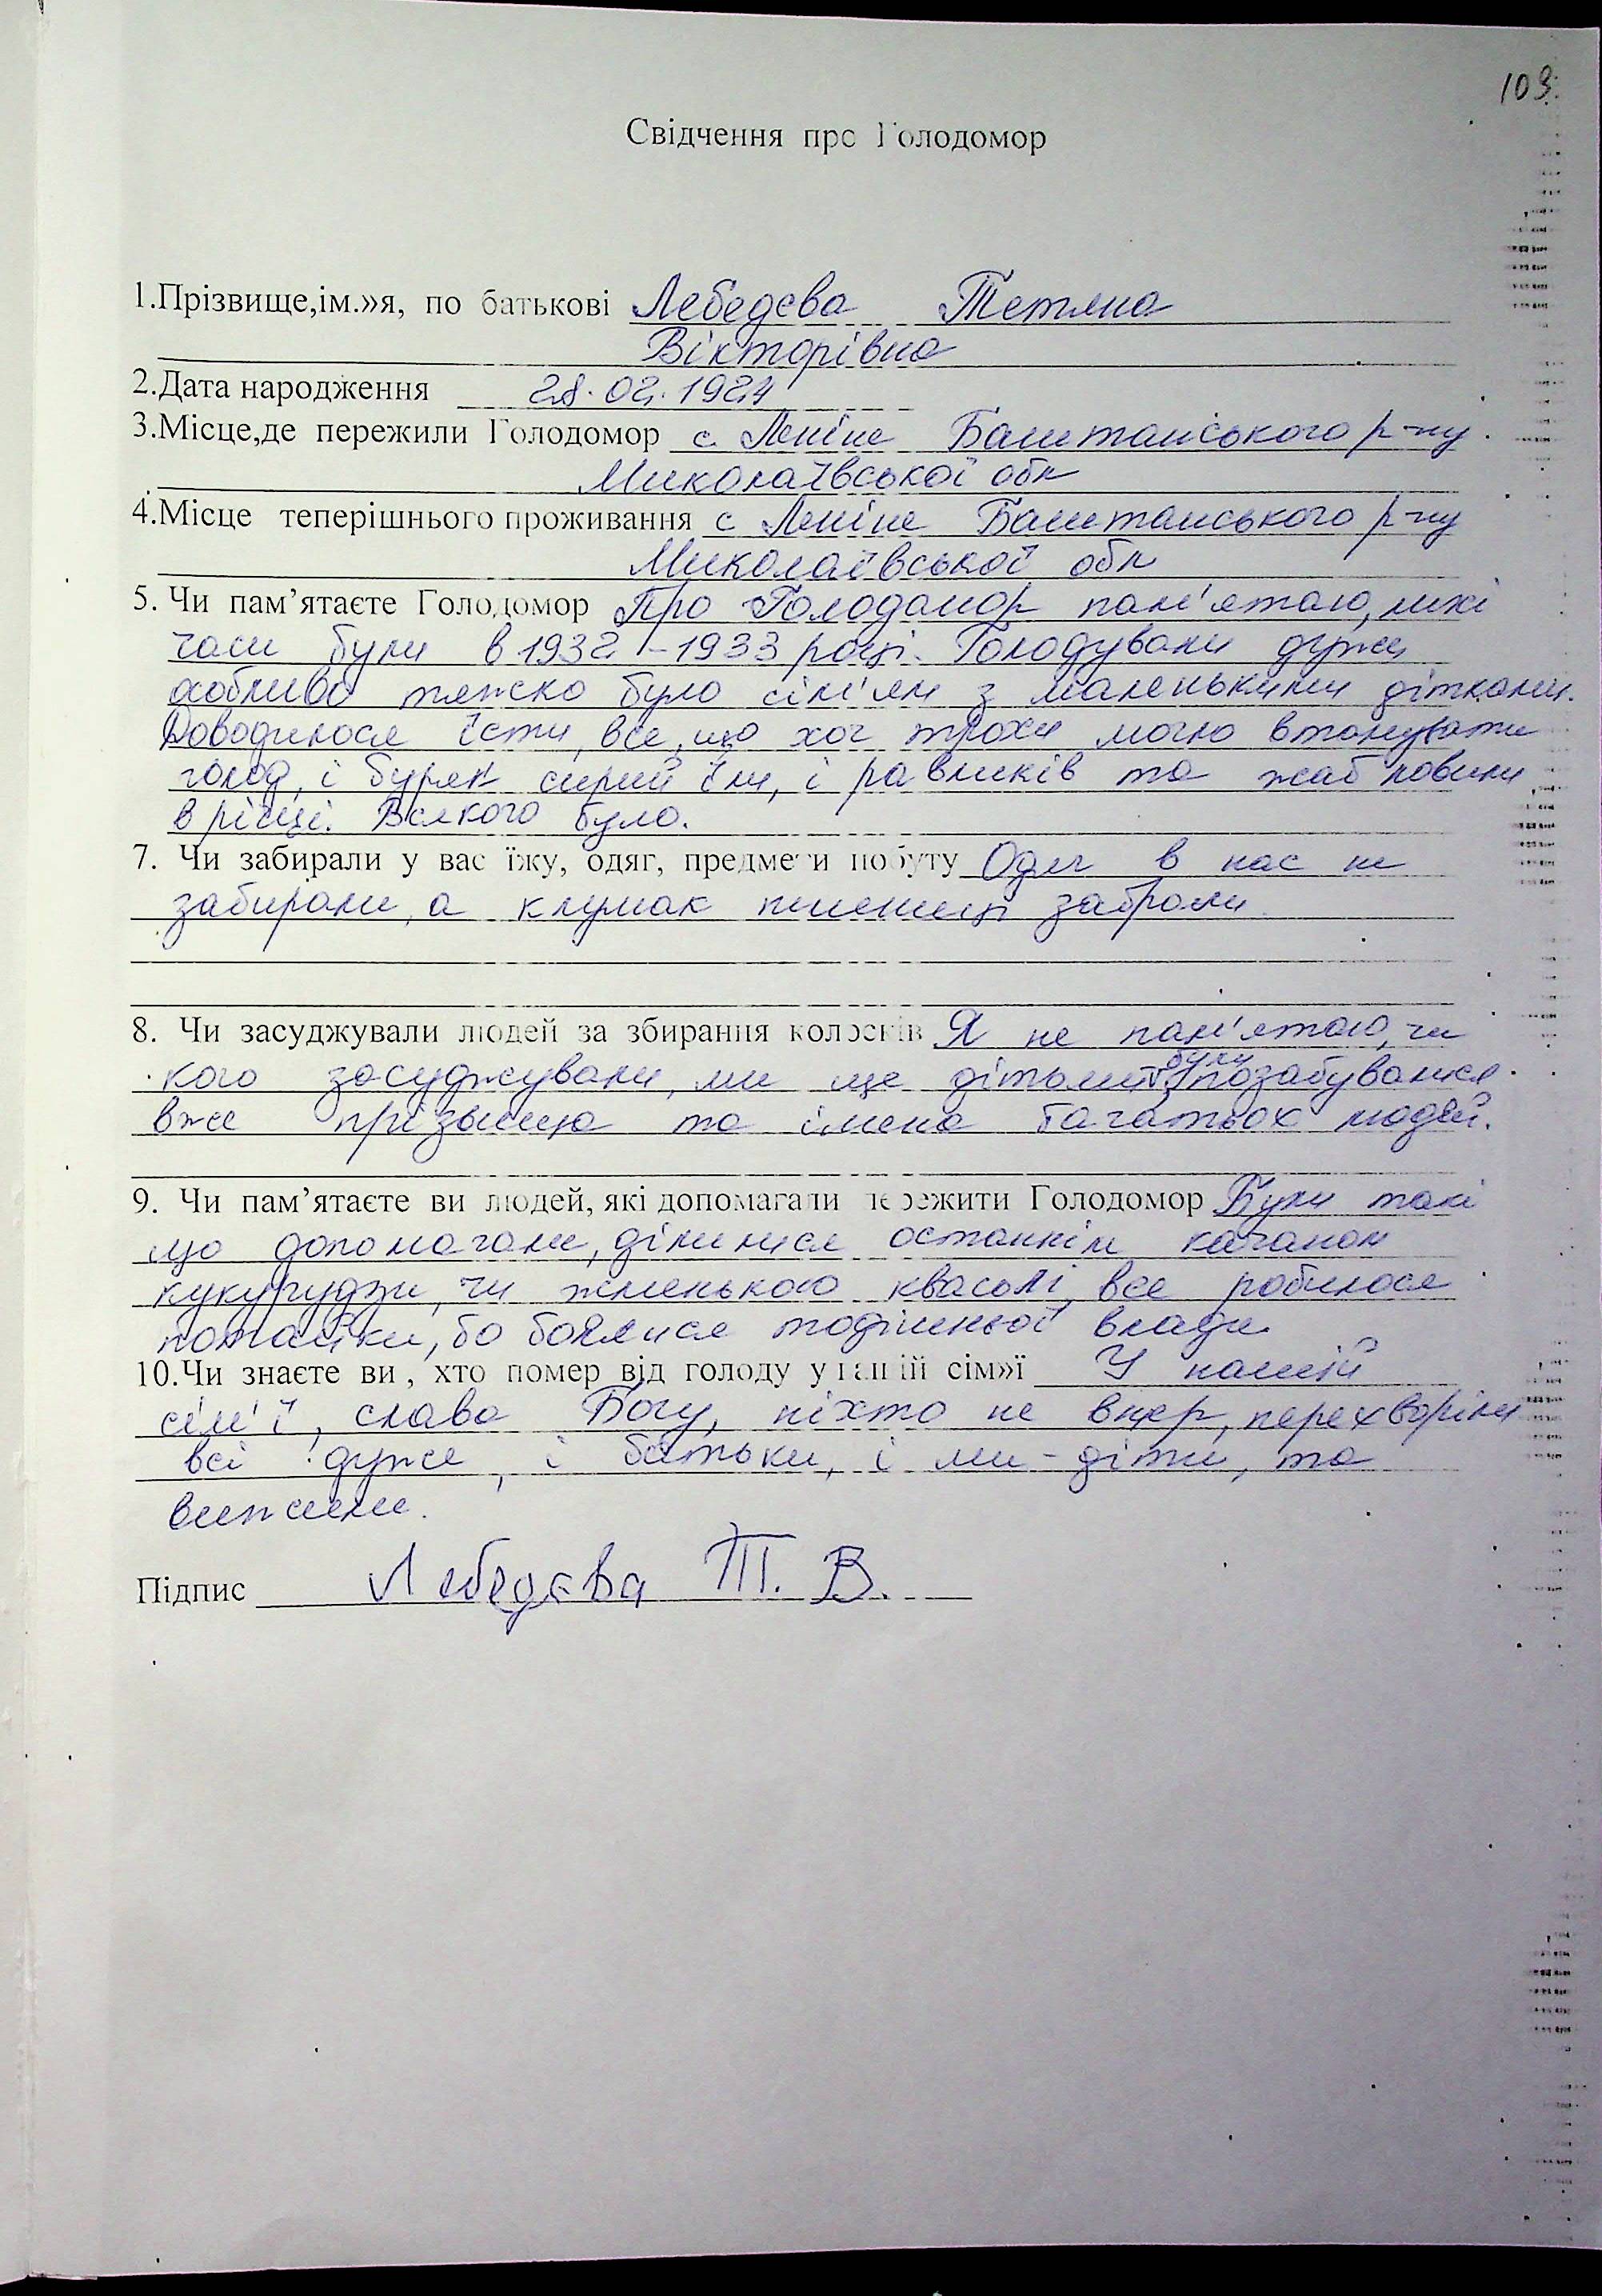 103.
Свідчення про Голодомор
1.Прізвище,ім.»я, по батькові Лебедєва Тетяна
Вікторівна
2.Дата народження 28.02.1924
3.Місце,де пережили Голодомор с. Леніне Баштанського р-ну
Миколаївської обл
4.Місце теперішнього проживання с Леніне Баштанського р-ну
Миколаївської обл
5. Чи пам’ятаєте Голодомор Про Голодомор пам'ятаю, лихі
часи були в 1932-1933 році. Голодували дуже
особливо тяжко було сім'ям з маленькими дітками.
Доводилося їсти все, що хоч трохи могло втамувати
голод, і буряк сирий їли, і равликів та жаб ловили
в річці. Всякого було.
7. Чи забирали у вас їжу, одяг, предмети побуту Одяг в нас не
забирали, а клумак пшениці забрали.
8. Чи засуджували людей за збирання колосків Я не пам'ятаю, чи
кого засуджували, ми ще дітьми були, позабувалися
вже прізвища та імена багатьох людей.
9. Чи пам’ятаєте ви людей, які допомагали пережити Голодомор Були такі
що допомагали, ділилися останнім качаном
кукурудзи, чи жменькою квасолі, все робилося
потайки, бо боялися тодішньої влади.
10.Чи знаєте ви , хто помер від голоду у вашій сім»ї У нашій
сім'ї, слава Богу, ніхто не вмер, перехворіли
всі дуже, і батьки, і ми - діти, та
вижили.
Підпис Лебедєва Т. В.